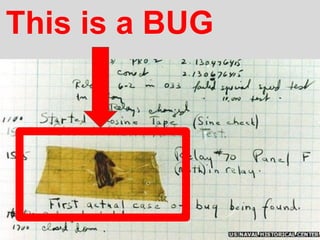 This is a BUG
PRO 2 2.130476415
conect 2.130676415
Relays 6-2 in 033 failed special speed test
in relay 10,000 test.
Relays changed
1100 Started Cosine Tape (Sine check)
Test.
Relay #70 Panel F
(moth) in relay.
First actual case of bug being found.
1700 closed down.
US NAVAL HISTORICAL CENTER